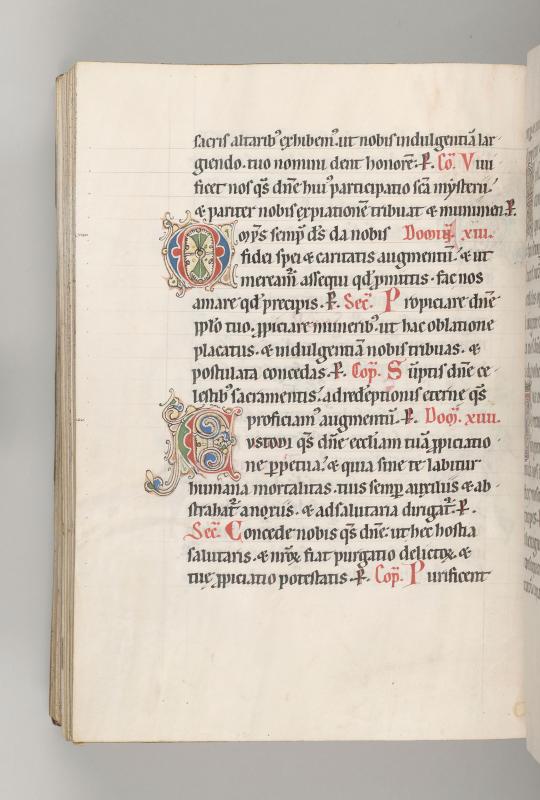 sacris altarib᾽ exhibem᾽. ut nobis indulgentiā lar
giendo. tuo nomini dent honorē. P. Cō. Viui
ficet nos qs̄ dn̄e hui᾽ participatio scā mysterii.
& pariter nobis expiationē tribuat & munimen. P.
O mp̄s semp̄ ds̄ da nobis Domī. xiii.
fidei spei & caritatis augmentū. & ut
meream̄ assequi qd̄ p̄mittis. fac nos
amare qd̄ precipis. P. Sec̄. Propiciare dn̄e
pp̄lo tuo. ꝓpiciare munerib᾽. ut hac oblatione
placatus. & indulgentiam nobis tribuas. &
postulata concedas. P. Cōp̄. Sūptis dn̄e ce
lestib᾽ sacramentis. ad redeptionis eterne qs̄
proficiam᾽ augmentū. P. Dom̄. xiiii.
Custodi qs̄ dn̄e eccliam tuā ꝓpiciatio
ne ꝑpetua. & quia sine te labitur
humana mortalitas. tuis semp̄ auxiliis & ab
strahat̄ a noxiis. & ad salutaria dirigat̄. P.
Sec̄. Concede nobis qs̄ dn̄e. ut hec hostia
salutaris. & nr̄oꝝ fiat purgatio delictoꝝ. &
tue ꝓpiciatio potestatis. P. Cōp̄. Purificent